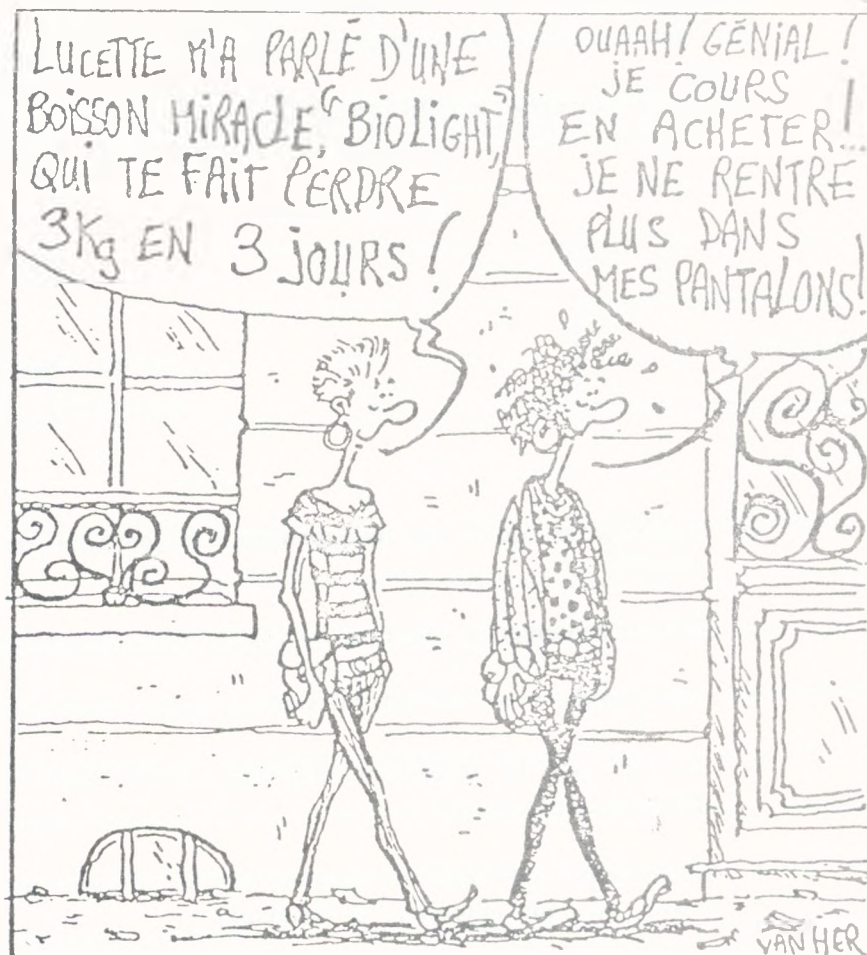 LUCETTE M'A PARLÉ D'UNE
BOISSON MIRACLE, "BIOLIGHT",
QUI TE FAIT PERDRE
3Kg EN 3 JOURS !
OUAAH ! GÉNIAL !
JE COURS
EN ACHETER...!
JE NE RENTRE
PLUS DANS
MES PANTALONS!
VANHER